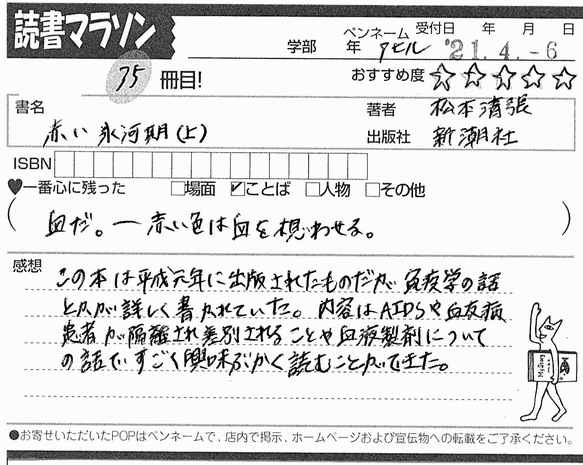 読書マラソン
学部 年 ペンネーム アヒル 受付日 年 月 日 '21.4.-6
75 冊目!
おすすめ度 ☆☆☆☆☆
書名 赤い氷河期(上)
著者 松本清張
出版社 新潮社
ISBN
♥一番心に残った □場面 ☑ことば □人物 □その他
(血だ。― 赤い色は血を想わせる。)
感想
この本は平成元年に出版されたものだが免疫学の話
とかが詳しく書かれていた。内容はAIDSや血友病
患者が隔離され差別されることや血液製剤について
の話ですごく興味ぶかく読むことができた。
●お寄せいただいたPOPはペンネームで、店内で掲示、ホームページおよび宣伝物への転載をご了承ください。